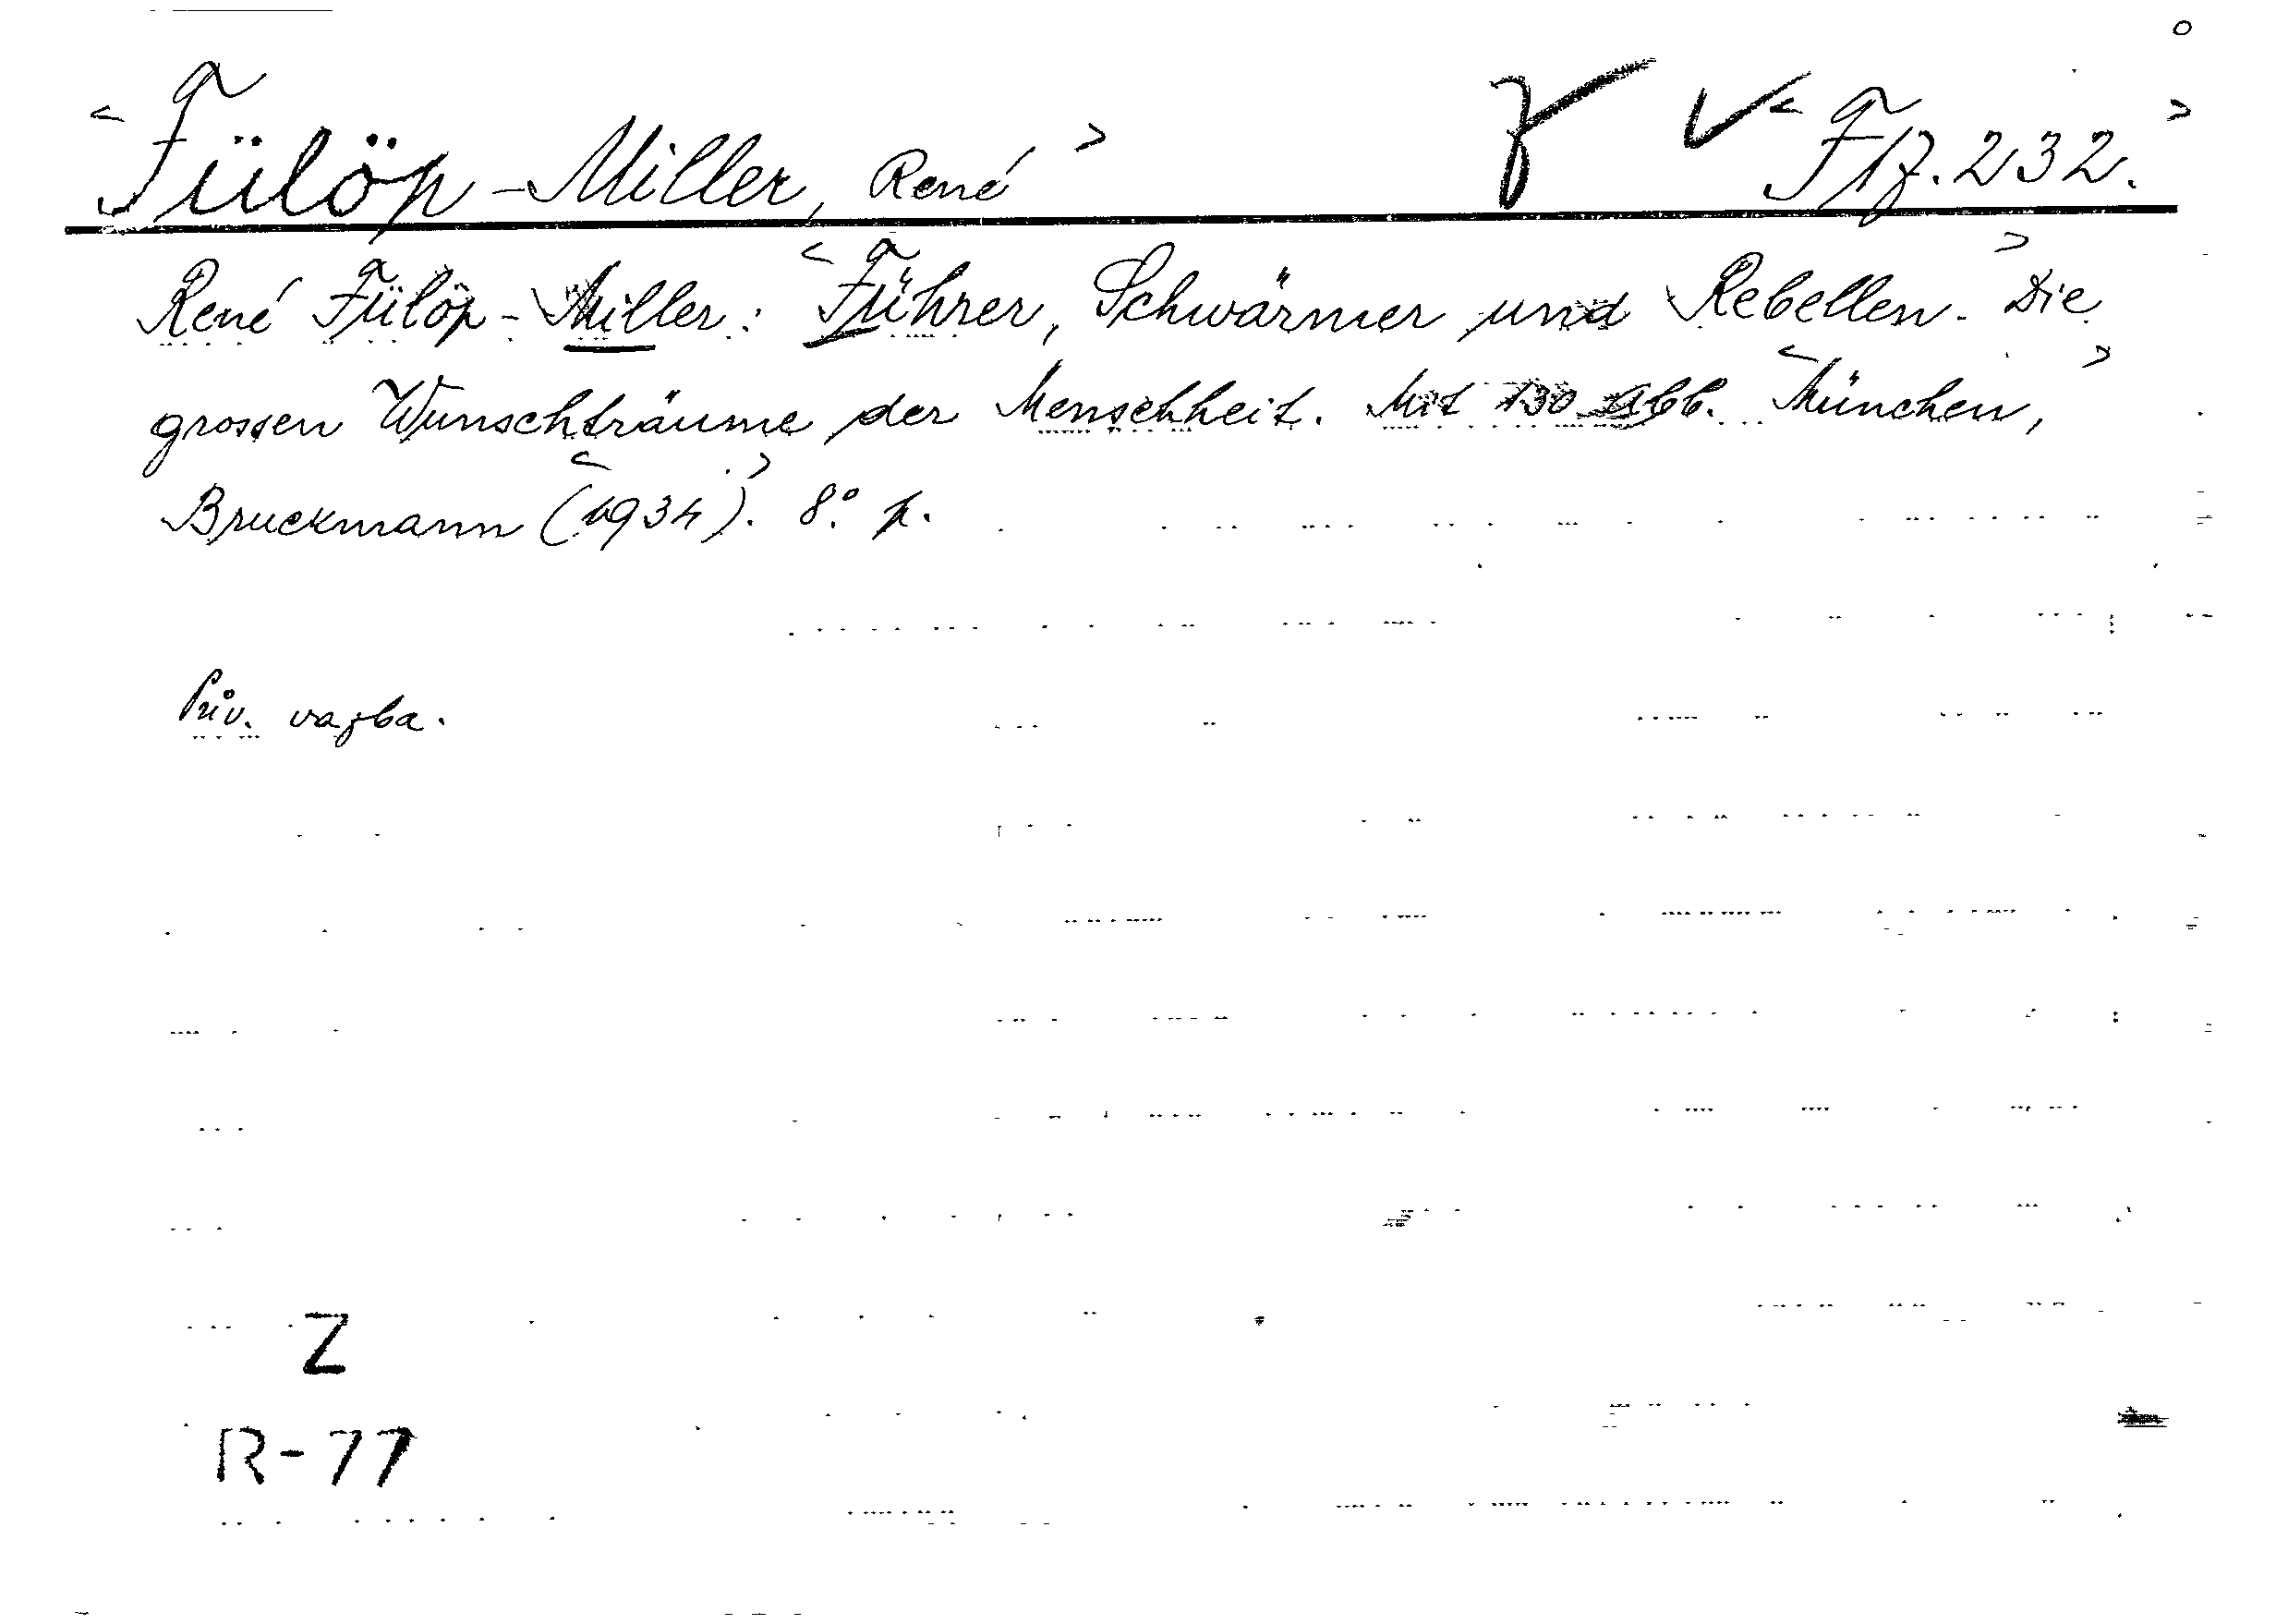 <Fülöp-Miller, René> <F17.232.>
René Fülöp-Miller: <Führer, Schwärmer und Rebellen.> Die
grossen Wunschträume der Menschheit. Mit 130 Abb. <München,>
Bruckmann (<1934>). 8°. p.
Pův. vazba.
Z
R-77